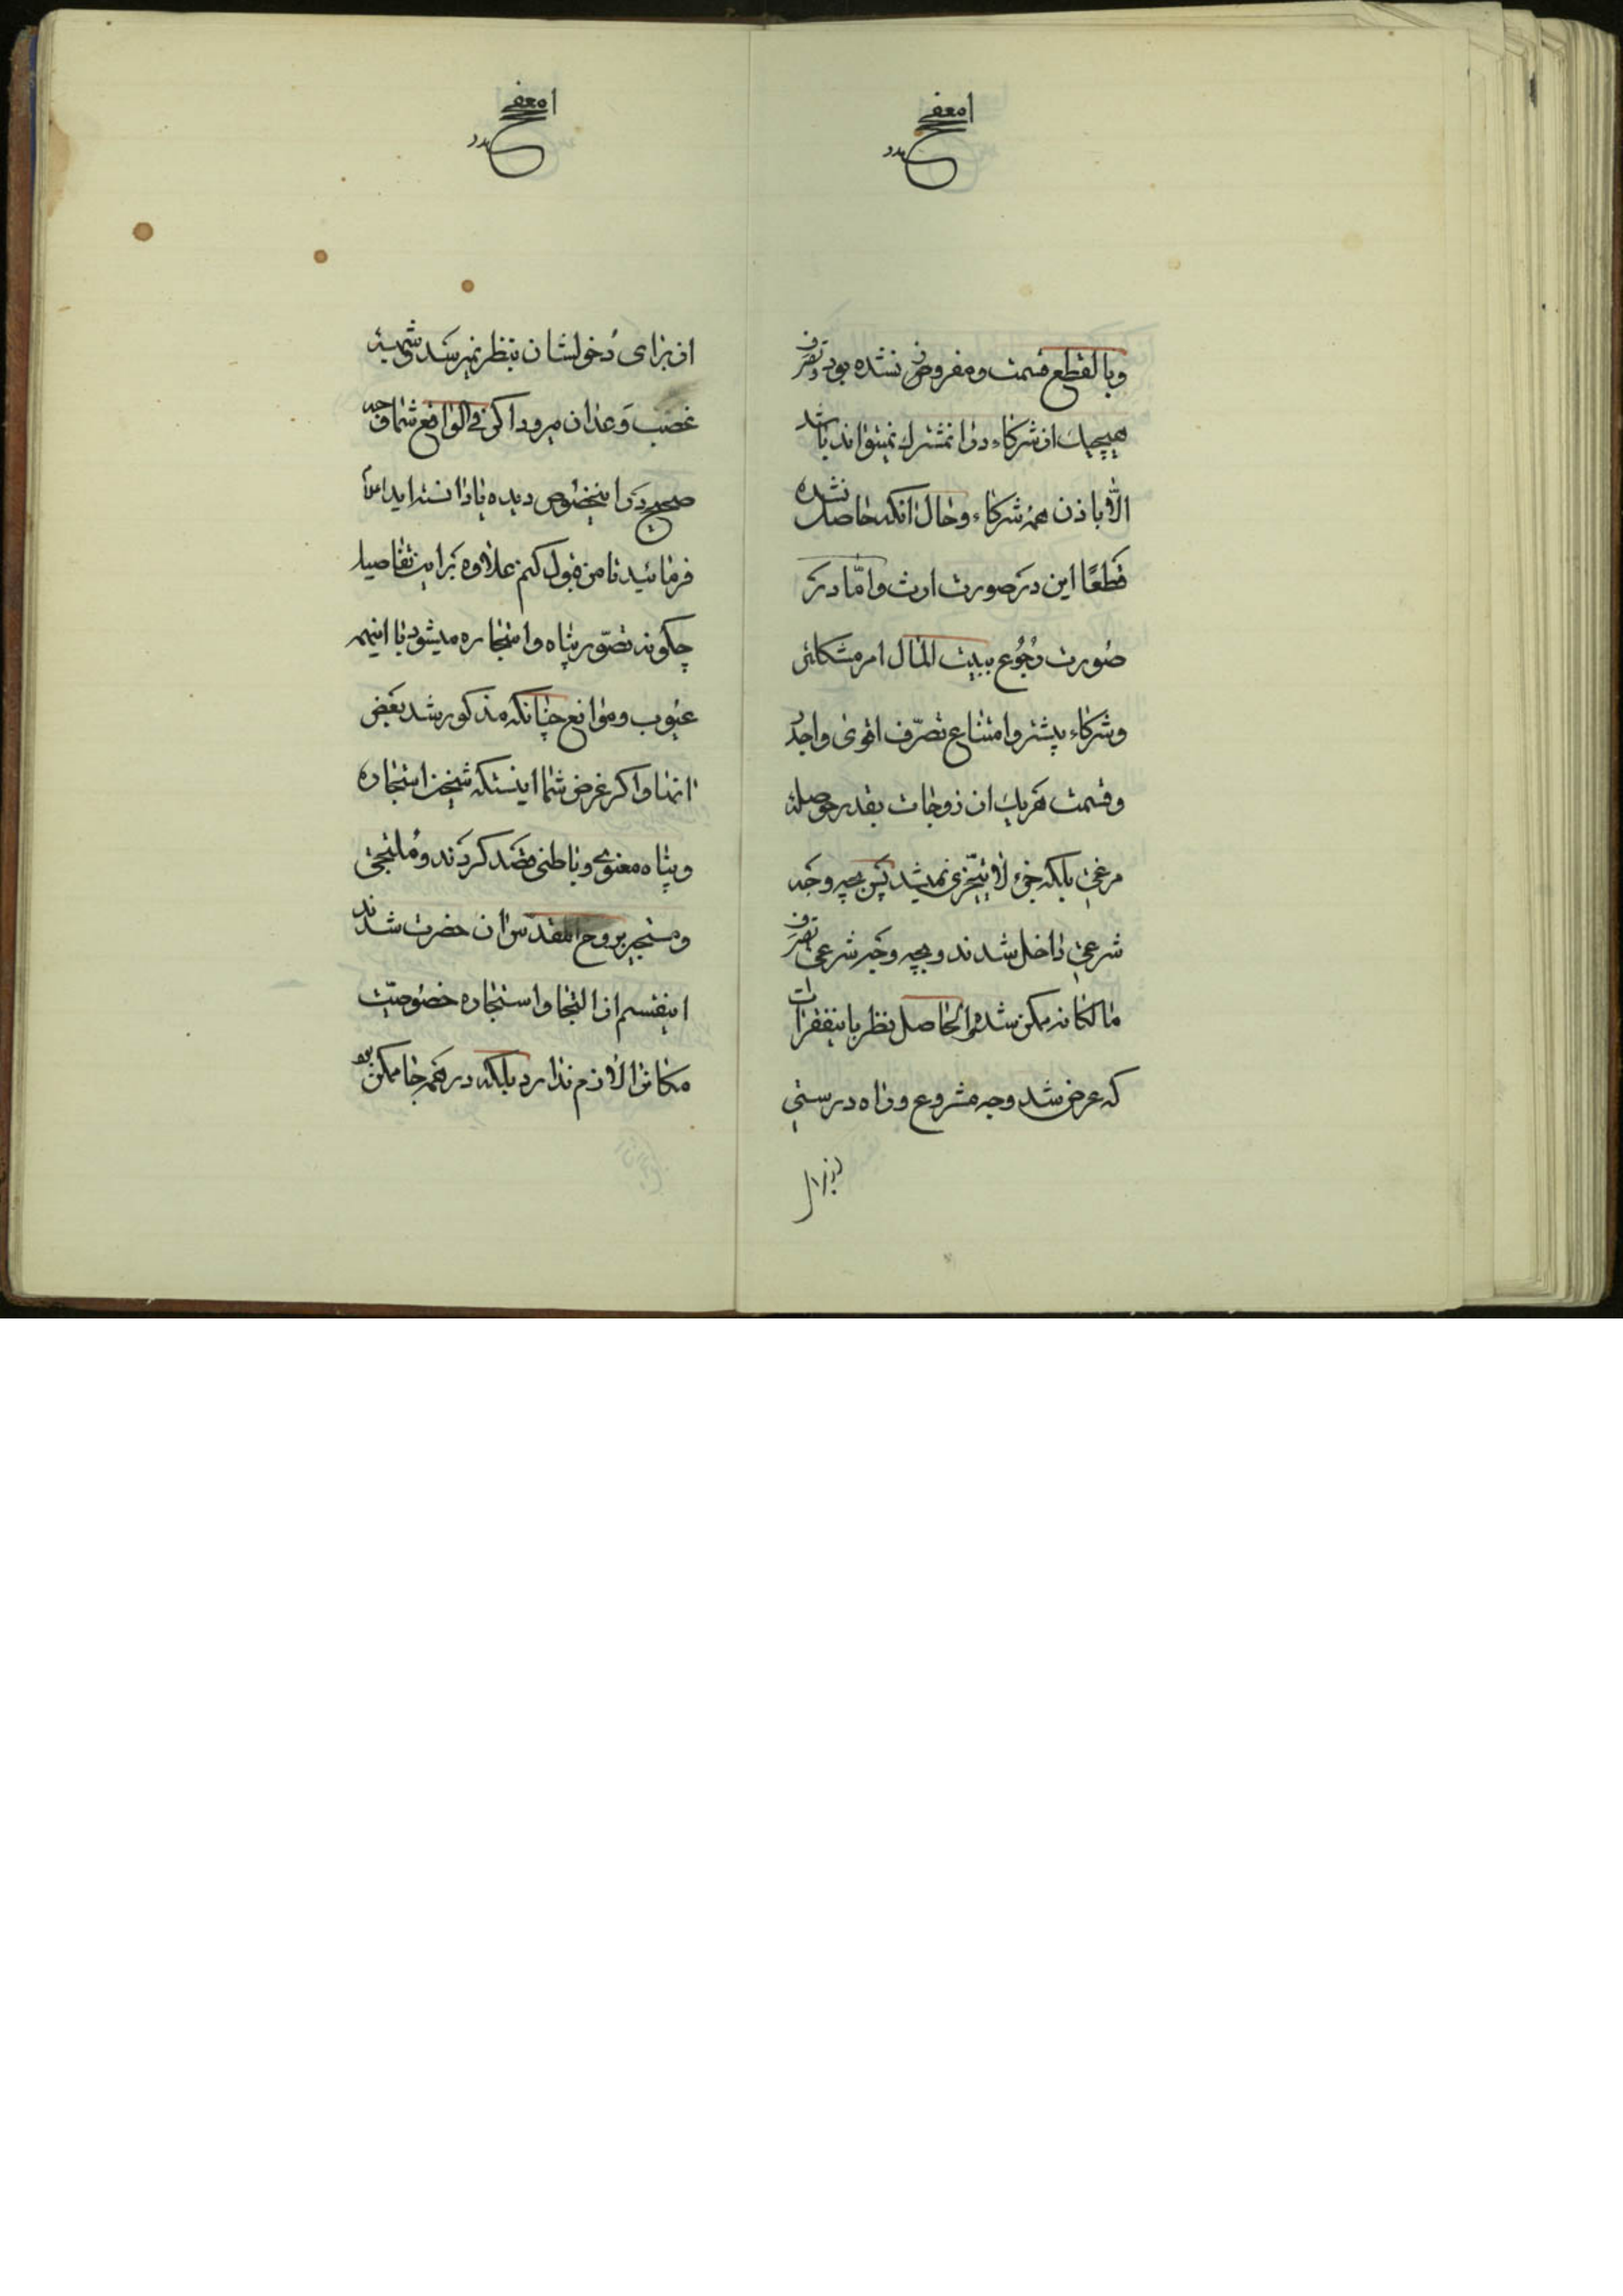 وبالقطع قسمت ومفروض نشده بود و تصرف
هیچیک از شرکاء در انمشترک نمیتواند باشد
الّا باذن همهٔ شرکاء و حال انکه حاصل نشده
قطعًا این در صورت ارث و امّا در
صورت رجوع ببیت المال امر مشکلتر
و شرکاء بیشتر و امتناع تصرّف اقوی واجدُ
و قسمت هریک از زوجات بقدر حوصلهٔ
مرغی بلکه جزء لا یتجزی نمیشد پس بچه وجه
شرعی داخل شدند و بچه وجه شرعی تصرف
مالکانه ممکن شد والحاصل نظر باینفقرات
که عرض شد وجه مشروع و راه درستی
از برای
از برای دخولشان بنظر نمیرسد و شبههٔ
غصب وعدان میرود اگر فی الواقع شما وجه
صحیح در اینخصوص دیده یا دانسته اید
فرمائید تا من قبول کنم علاوه بر این تفاصیل
چگونه تصوّر پناه و استجاره میشود با اینهمه
عیوب و موانع چنانکه مذکور شد بعض
انها و اگر غرض شما اینستکه شیخین استجاره
و پناه معنوی و باطنی قصد کردند و ملتجی
و مستجیر بروح المقدس ان حضرت شدند
اینقسم از التجا و استجاره خصوصیّت
مکان را لازم ندارد بلکه در همه جا ممکن بود